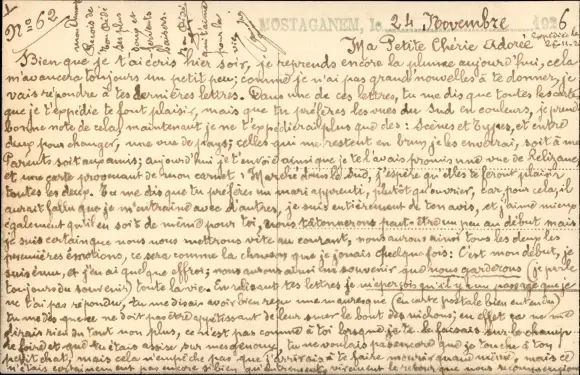 Nº 62
MOSTAGANEM, le 24 Novembre 1926
Ma Petite Chérie Adorée
Bien que je t'ai écris hier soir, je reprends encore la plume aujourd'hui, cela
m'avancera toujours un petit peu; comme je n'ai pas grand'nouvelles à te donner, je
vais répondre à tes dernières lettres. Dans une de ces lettres, tu me dis que toutes les cartes
que je t'expédie te font plaisir, mais que tu préfères les vues du Sud en couleurs, je prends
bonne note de cela, maintenant je ne t'expédierai plus que des: Scènes et Types, et entre
deux pour changer, une vue de pays; celles qui me restent en brun, je les enverrai, soit à mes
Parents soit aux amis; aujourd'hui je t'envoie ainsi que je te l'avais promis une vue de Relizane,
et une carte provenant de mon carnet: Marché dans le Sud, j'espère qu'elles te feront plaisir
toutes les deux. Tu me dis que tu préfères un mari apprenti, plutôt qu'ouvrier, car pour cela, il
aurait fallu que je m'entraîne avec d'autres, je suis entièrement de ton avis, et j'aime mieux
également qu'il en soit de même pour toi, nous tâtonnerons peut-être un peu au début mais
je suis certain que nous nous mettrons vite au courant, nous aurons ainsi tous les deux les
premières émotions, ce sera comme la chanson que je jouais quelque fois: C'est mon début, je
suis ému, et j'en ai quelque effroi; nous aurons ainsi un souvenir que nous garderons (je parle
toujours du souvenir) toute la vie. En relisant tes lettres je m'aperçois qu'il y a un passage que je
ne t'ai pas répondu, tu me disais avoir bien reçu une mauresque (en carte postale bien entendu)
tu me dis que ce ne doit pas être appétissant de leur sucer le bout des nichons; en effet ça ne me
dirait rien du tout non plus, ce n'est pas comme à toi lorsque je te le faisais sur le champ
de foire et que tu étais assise sur mes genoux, tu ne voulais pas encore que je touche à ton
petit chat, mais cela n'empêche pas que j'arrivais à te faire mourir quand même, mais ce
n'était certainement pas encore si bien qu'